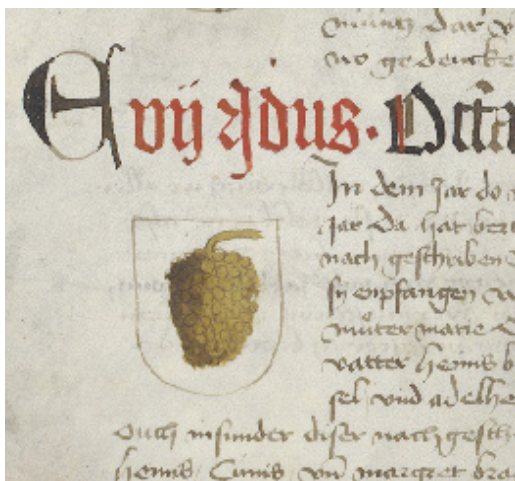 no gedencke
A vij ydus. Octa
In dem Jar do
Jar Da hat bert
nach geschriben
sy enpfangen
müter marie
vatter heinis b
sel vnd adelhe
Ouch insunder diser nachgesch
heinis Cunis vnd margret bra